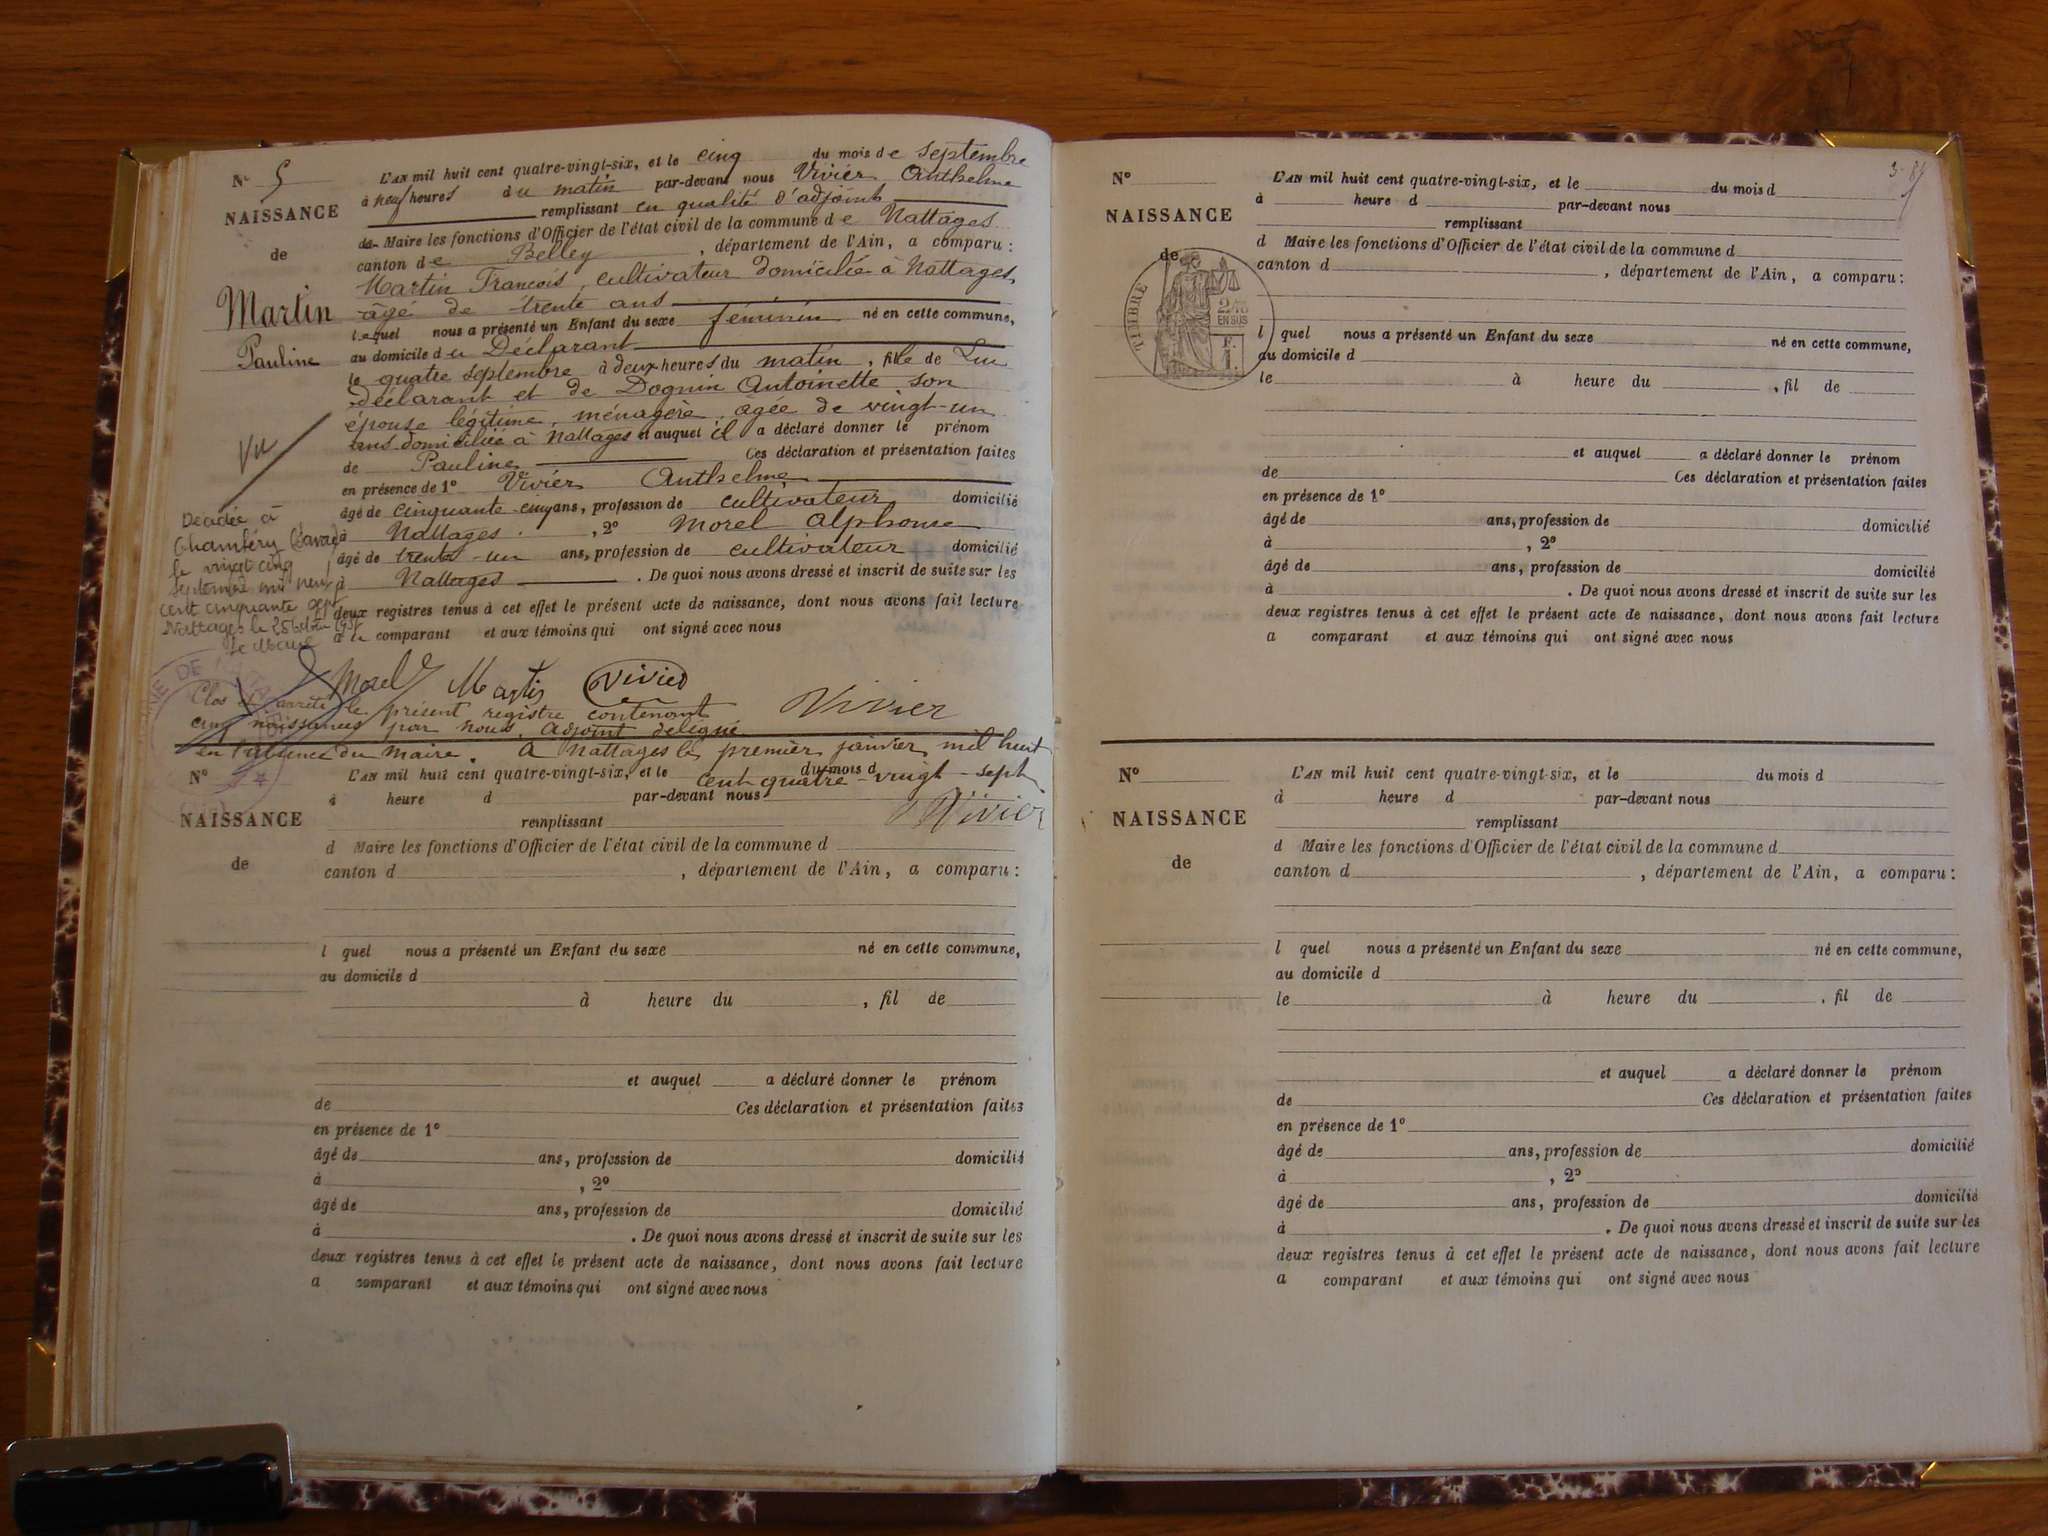 N° 5
NAISSANCE
de
Martin
Pauline
Vu
L'AN mil huit cent quatre-vingt-six, et le cinq du mois de septembre
à neuf heures du matin par-devant nous Vivier Anthelme
remplissant en qualité d'adjoint
de Maire les fonctions d'Officier de l'état civil de la commune de Nattages
canton de Belley, département de l'Ain, a comparu:
Martin François, cultivateur domicilié à Nattages,
âgé de trente ans
lequel nous a présenté un Enfant du sexe féminin né en cette commune,
au domicile du Déclarant
le quatre septembre à deux heures du matin, fille de Lui
déclarant et de Dognin Antoinette son
épouse légitime, ménagère, âgée de vingt-un
ans domiciliée à Nattages et auquel il a déclaré donner le prénom
de Pauline Ces déclaration et présentation faites
en présence de 1° Vivier Anthelme
âgé de cinquante-cinq ans, profession de cultivateur domicilié
à Nattages, 2° Morel Alphonse
âgé de trente-un ans, profession de cultivateur domicilié
à Nattages. De quoi nous avons dressé et inscrit de suite sur les
deux registres tenus à cet effet le présent acte de naissance, dont nous avons fait lecture
au comparant et aux témoins qui ont signé avec nous
Décédée à
Chambéry (Savoie)
le vingt cinq
septembre mil neuf
cent cinquante sept
Nattages le
le Maire
Morel Martin Vivier
Vivier
Clos et arrêté le présent registre contenant
cinq naissances par nous, adjoint délégué
en l'absence du maire. A Nattages le premier janvier mil huit
cent quatre-vingt-sept
Vivier
N°
NAISSANCE
de
L'AN mil huit cent quatre-vingt-six, et le du mois d
à heure d par-devant nous
remplissant
d Maire les fonctions d'Officier de l'état civil de la commune d
canton d , département de l'Ain, a comparu:
l quel nous a présenté un Enfant du sexe né en cette commune,
au domicile d
à heure du , fil de
et auquel a déclaré donner le prénom
de Ces déclaration et présentation faites
en présence de 1°
âgé de ans, profession de domicilié
à , 2°
âgé de ans, profession de domicilié
à . De quoi nous avons dressé et inscrit de suite sur les
deux registres tenus à cet effet le présent acte de naissance, dont nous avons fait lecture
a comparant et aux témoins qui ont signé avec nous
N°
NAISSANCE
de
TIMBRE
2/10
EN SUS
L'AN mil huit cent quatre-vingt-six, et le du mois d
à heure d par-devant nous
remplissant
d Maire les fonctions d'Officier de l'état civil de la commune d
canton d , département de l'Ain, a comparu:
l quel nous a présenté un Enfant du sexe né en cette commune,
au domicile d
le à heure du , fil de
et auquel a déclaré donner le prénom
de Ces déclaration et présentation faites
en présence de 1°
âgé de ans, profession de domicilié
à , 2°
âgé de ans, profession de domicilié
à . De quoi nous avons dressé et inscrit de suite sur les
deux registres tenus à cet effet le présent acte de naissance, dont nous avons fait lecture
a comparant et aux témoins qui ont signé avec nous
N°
NAISSANCE
de
L'AN mil huit cent quatre-vingt-six, et le du mois d
à heure d par-devant nous
remplissant
d Maire les fonctions d'Officier de l'état civil de la commune d
canton d , département de l'Ain, a comparu:
l quel nous a présenté un Enfant du sexe né en cette commune,
au domicile d
le à heure du , fil de
et auquel a déclaré donner le prénom
de Ces déclaration et présentation faites
en présence de 1°
âgé de ans, profession de domicilié
à , 2°
âgé de ans, profession de domicilié
à . De quoi nous avons dressé et inscrit de suite sur les
deux registres tenus à cet effet le présent acte de naissance, dont nous avons fait lecture
a comparant et aux témoins qui ont signé avec nous